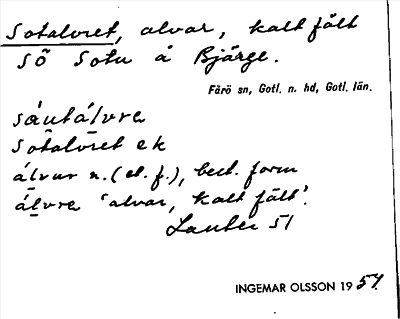 Sotalvret, alvar, kalt fält
SÖ Sotu å Bjärge.
Fårö sn, Gotl. n. hd, Gotl. län.
sáutálvra
Sotalvret ek
álvur n. (el. f.), best. form
álvra 'alvar, kalt fält'.
Lauter 51
INGEMAR OLSSON 1957.